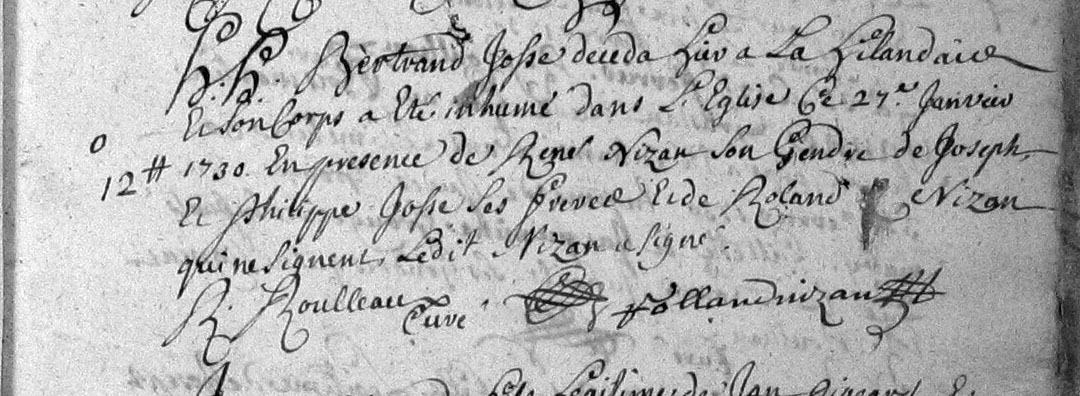 h.h. Bertrand Josse deceda hier a La hilandaie
Et son Corps a Eté inhumé dans L'Eglise Ce 27.e Janvier
0
12 # 1730. En presence de René Nizan son Gendre de Joseph
Et Philippe Josse ses freres Et de Roland Nizan
qui ne signent, Ledit Nizan a signé.
R. Roulleau Curé Rollandnizan
Legitime de Jan